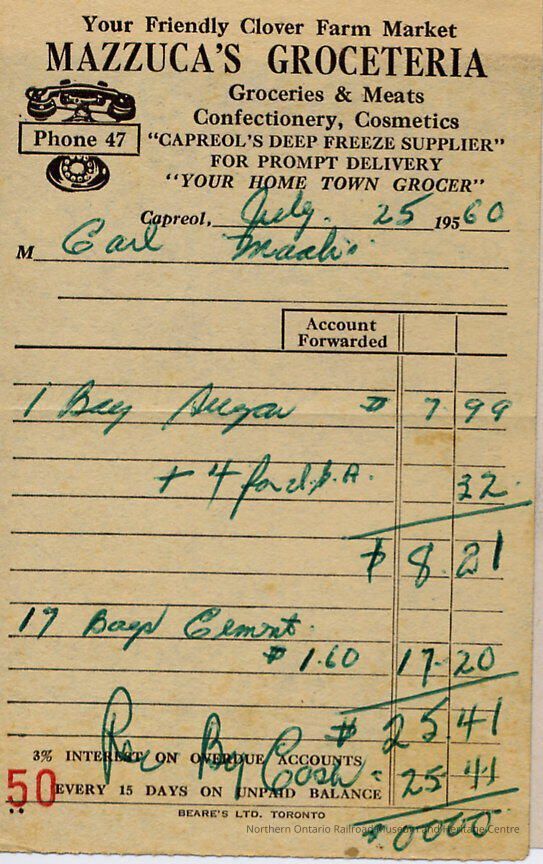 Your Friendly Clover Farm Market
MAZZUCA'S GROCETERIA
Groceries & Meats
Confectionery, Cosmetics
Phone 47
"CAPREOL'S DEEP FREEZE SUPPLIER"
FOR PROMPT DELIVERY
"YOUR HOME TOWN GROCER"
Capreol, July. 25 195 60
M Carl
Account
Forwarded
1 Bag Sugar $ 7 99
+ 4 32
$ 8.21
17 Bags Cement.
$ 1.60 17-20
$ 25 41
Rec By Cash = 25 41
3% INTEREST ON OVERDUE ACCOUNTS
50 EVERY 15 DAYS ON UNPAID BALANCE
BEARE'S LTD. TORONTO
0000
Northern Ontario Railroad Museum and Heritage Centre